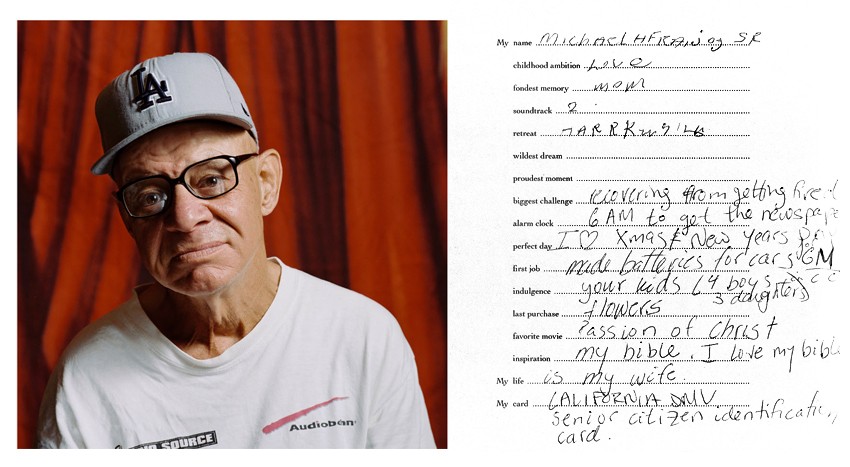 LA
SOURCE
Audiobahn
My name MichAel HFRAN SR
childhood ambition Love
fondest memory mom
soundtrack 2
retreat
wildest dream
proudest moment
biggest challenge recovering from getting fired
alarm clock 6 AM to get the newspape
perfect day I ♡ Xmas & New Years
first job made batteries for cars GM
indulgence your kids (4 boys
3 daughters)
last purchase flowers
favorite movie Passion of Christ
inspiration my bible. I love my bibl
My life is my wife.
My card CALIFORNIA DMV
senior citizen identificati
card.